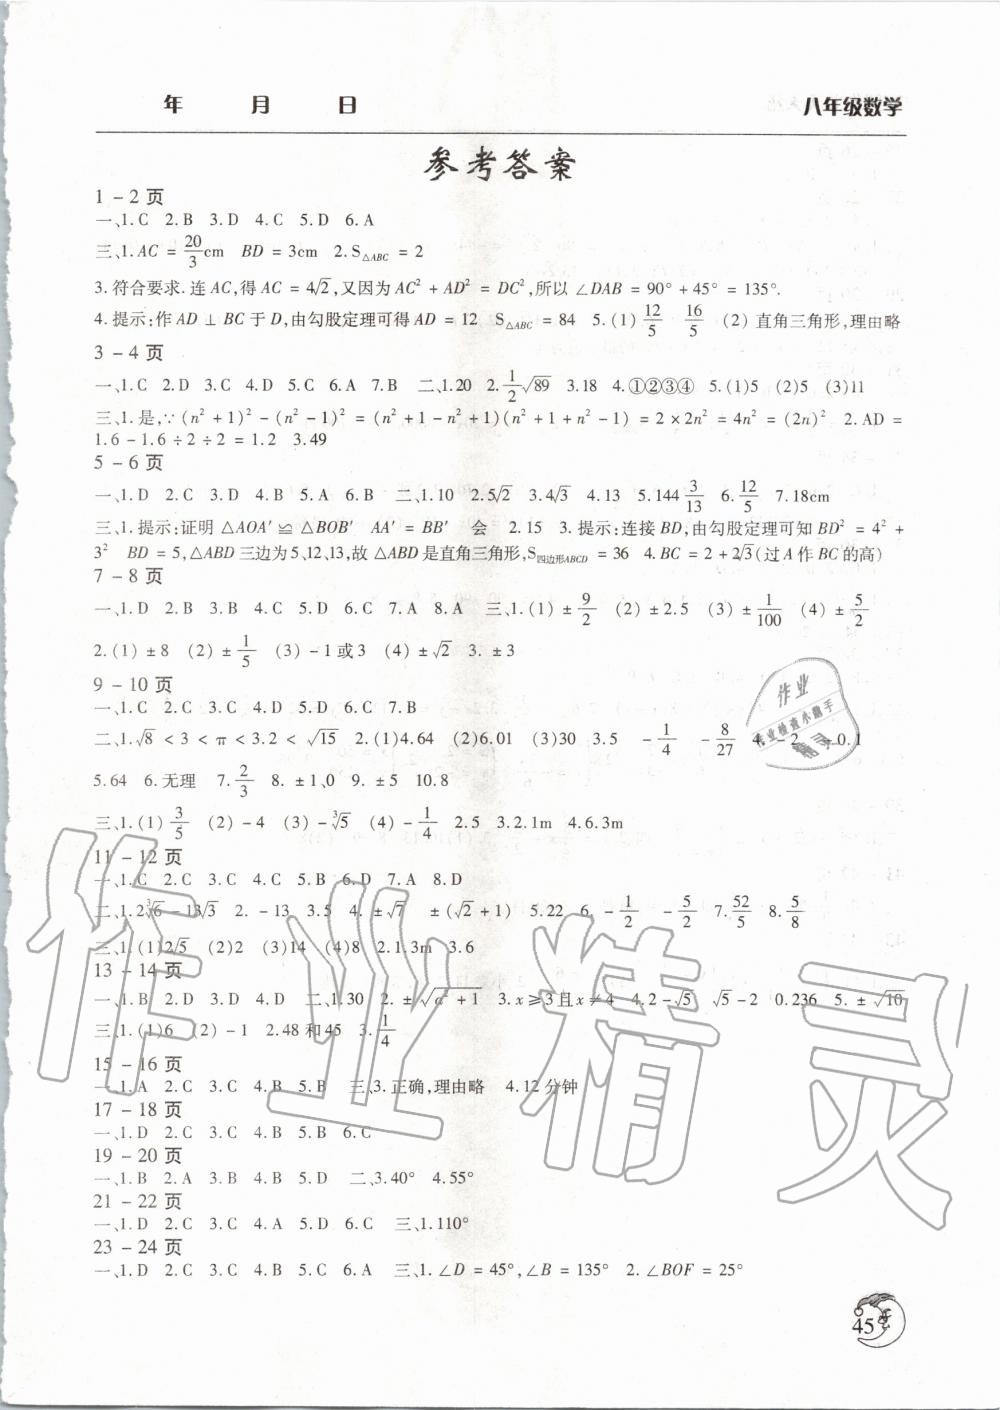 年 月 日 八年级数学
参考答案
1-2页
一、1.C 2.B 3.D 4.C 5.D 6.A
三、1.AC = 20/3 cm BD = 3cm 2.S△ABC = 2
3.符合要求.连AC,得AC = 4√2,又因为AC² + AD² = DC²,所以∠DAB = 90° + 45° = 135°.
4.提示:作AD⊥BC于D,由勾股定理可得AD = 12 S△ABC = 84 5.(1) 12/5 16/5 (2) 直角三角形,理由略
3-4页
一、1.C 2.D 3.C 4.D 5.C 6.A 7.B 二、1.20 2. 1/2 √89 3.18 4.①②③④ 5.(1)5 (2)5 (3)11
三、1.是,∵(n² + 1)² - (n² - 1)² = (n² + 1 - n² + 1)(n² + 1 + n² - 1) = 2 × 2n² = 4n² = (2n)² 2.AD =
1.6 - 1.6 ÷ 2 ÷ 2 = 1.2 3.49
5-6页
一、1.D 2.C 3.D 4.B 5.A 6.B 二、1.10 2.5√2 3.4√3 4.13 5.144 3/13 6. 12/5 7.18cm
三、1.提示:证明△AOA′≌△BOB′ AA′ = BB′ 会 2.15 3.提示:连接BD,由勾股定理可知BD² = 4² +
3² BD = 5,△ABD三边为5、12、13,故△ABD是直角三角形,S四边形ABCD = 36 4.BC = 2 + 2√3(过A作BC的高)
7-8页
一、1.D 2.B 3.B 4.C 5.D 6.C 7.A 8.A 三、1.(1) ± 9/2 (2) ±2.5 (3) ± 1/100 (4) ± 5/2
2.(1) ±8 (2) ± 1/5 (3) -1或3 (4) ±√2 3. ±3
9-10页
一、1.C 2.C 3.C 4.D 5.D 6.C 7.B
二、1.√8 < 3 < π < 3.2 < √15 2.(1)4.64 (2)6.01 (3)30 3.5 - 1/4 - 8/27 4. -2 -0.1
5.64 6.无理 7. 2/3 8. ±1、0 9. ±5 10.8
三、1.(1) 3/5 (2) -4 (3) -³√5 (4) - 1/4 2.5 3.2.1m 4.6.3m
11-12页
一、1.C 2.C 3.C 4.C 5.B 6.D 7.A 8.D
二、1.2³√6 - 13√3 2. -13 3.5 4. ±√7 ±(√2 + 1) 5.22 6. - 1/2 - 5/2 7. 52/5 8. 5/8
三、1.(1)2√5 (2)2 (3)14 (4)8 2.1.3m 3.6
13-14页
一、1.C 2.D 3.D 4.D 二、1.30 2. ±√(a² + 1) 3.x ≥ 3且x ≠ 4 4.2 - √5 √5 - 2 0.236 5. ±√10
三、1.(1)6 (2) -1 2.48和45 3. 1/4
15-16页
一、1.A 2.C 3.C 4.B 5.B 三、3.正确,理由略 4.12分钟
17-18页
一、1.D 2.C 3.C 4.B 5.B 6.C
19-20页
一、1.B 2.A 3.B 4.B 5.D 二、3.40° 4.55°
21-22页
一、1.D 2.C 3.C 4.A 5.D 6.C 三、1.110°
23-24页
一、1.D 2.C 3.C 4.B 5.C 6.A 三、1.∠D = 45°,∠B = 135° 2.∠BOF = 25°
45
作业
作业检查小助手
精灵
作业精灵